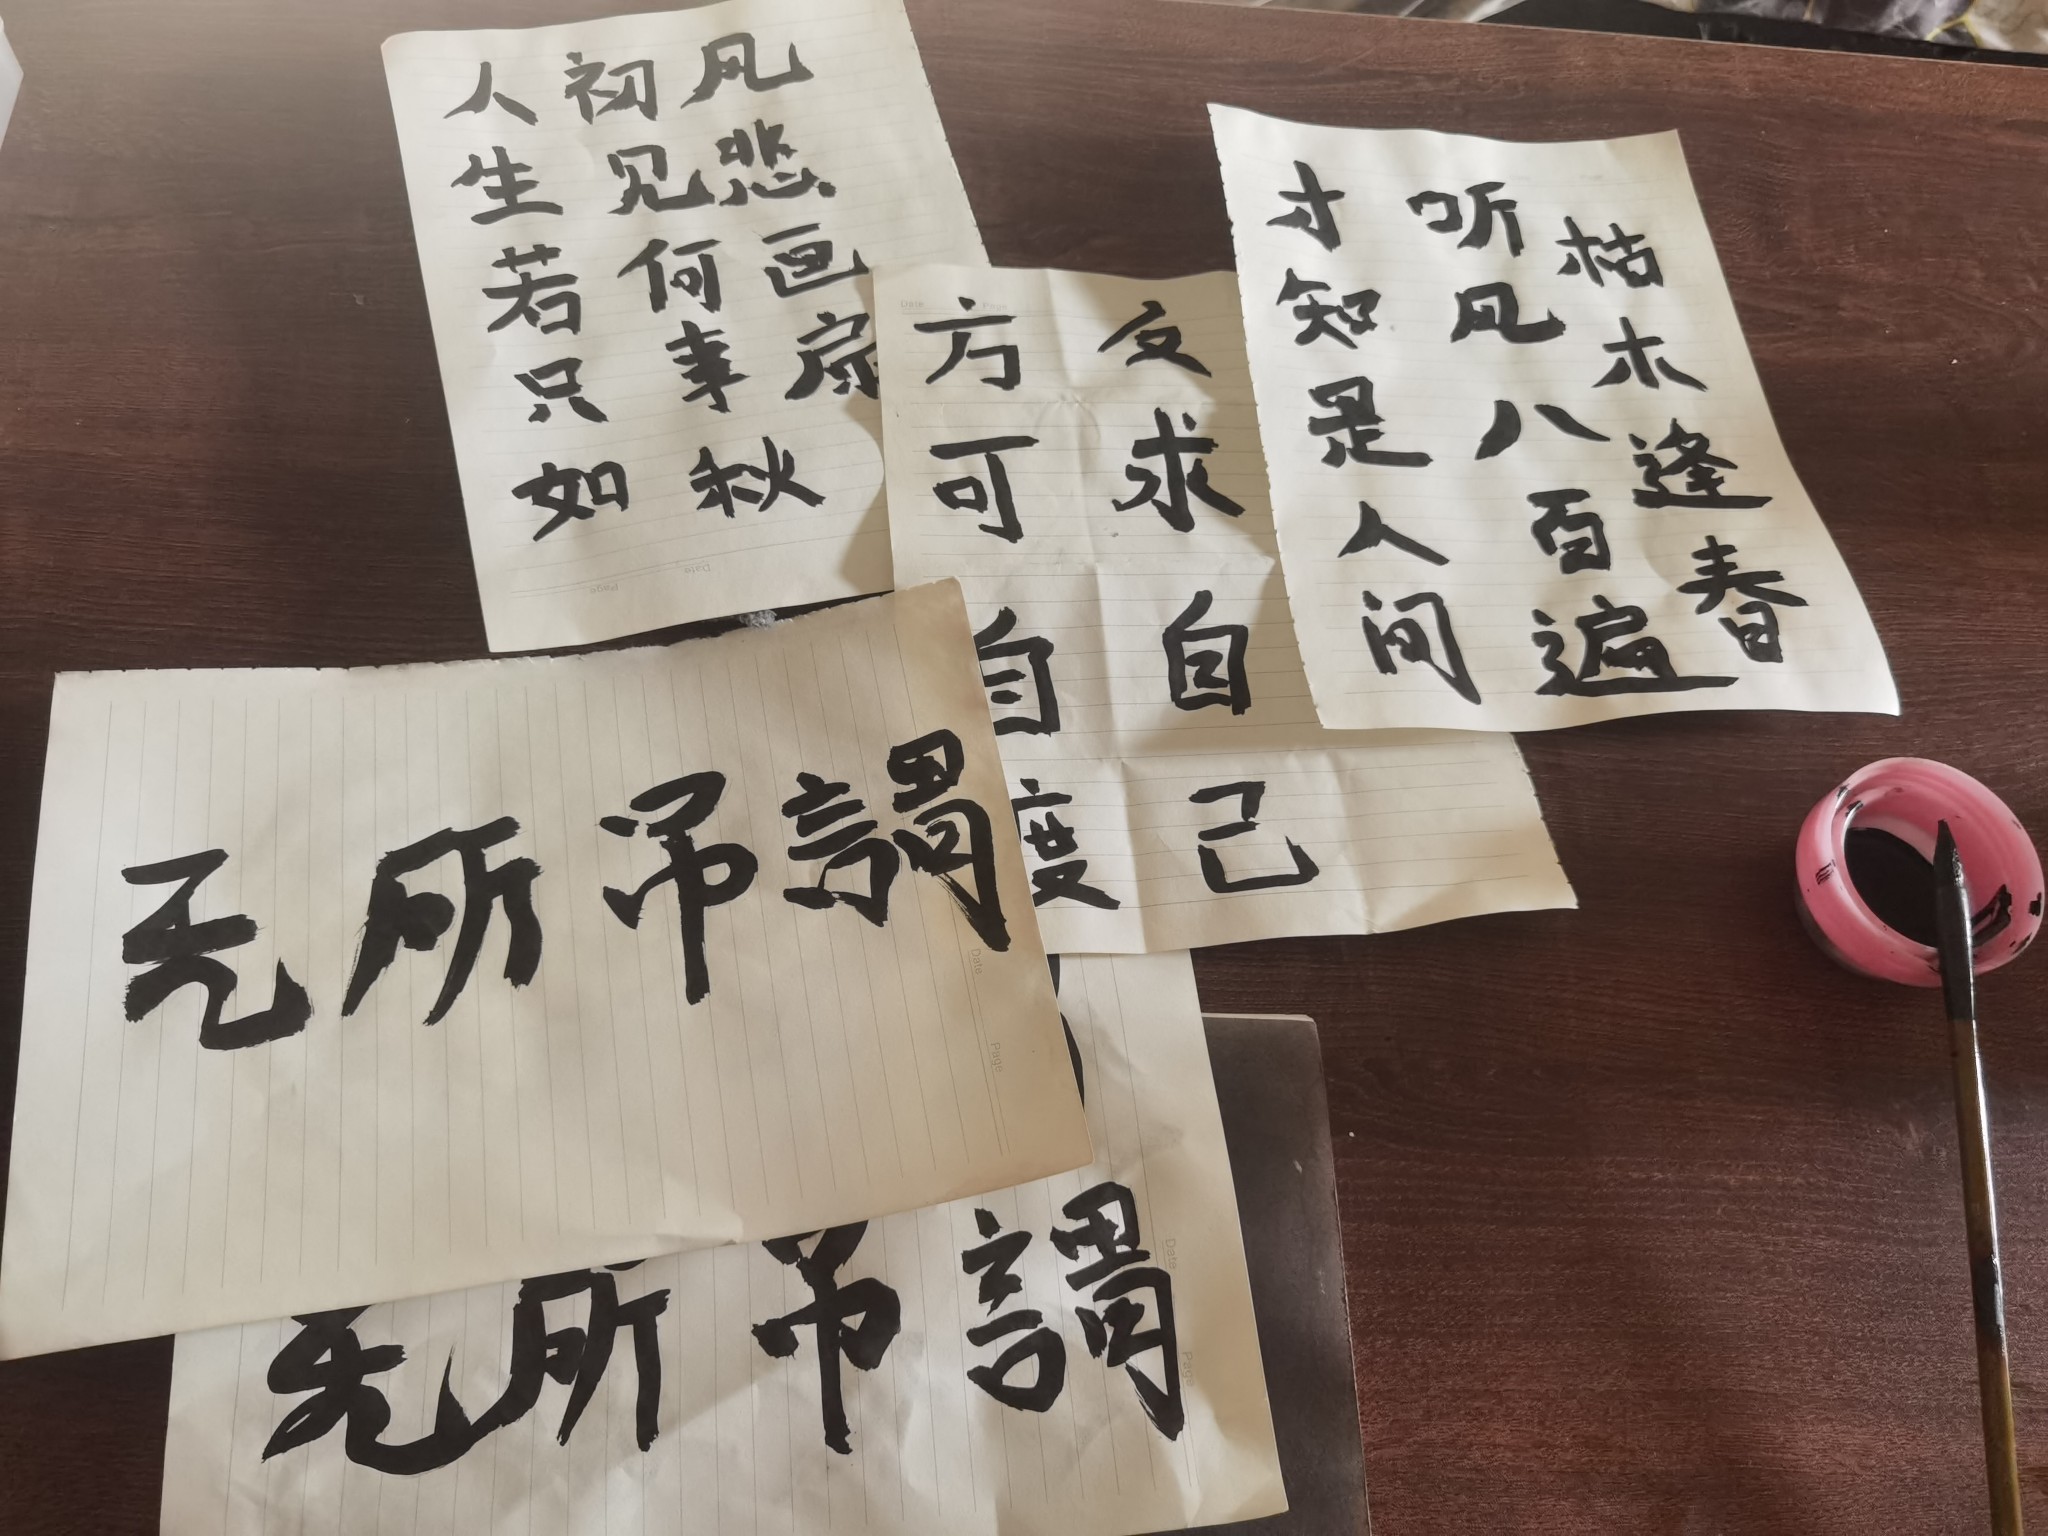 人生若只如
初见何事秋
风悲画扇
Date
Page
Date Page
反求自己
方可自度
枯木逢春
听风八百遍
才知是人间
无所吊謂
Date
Page
无所吊謂
Date
Page